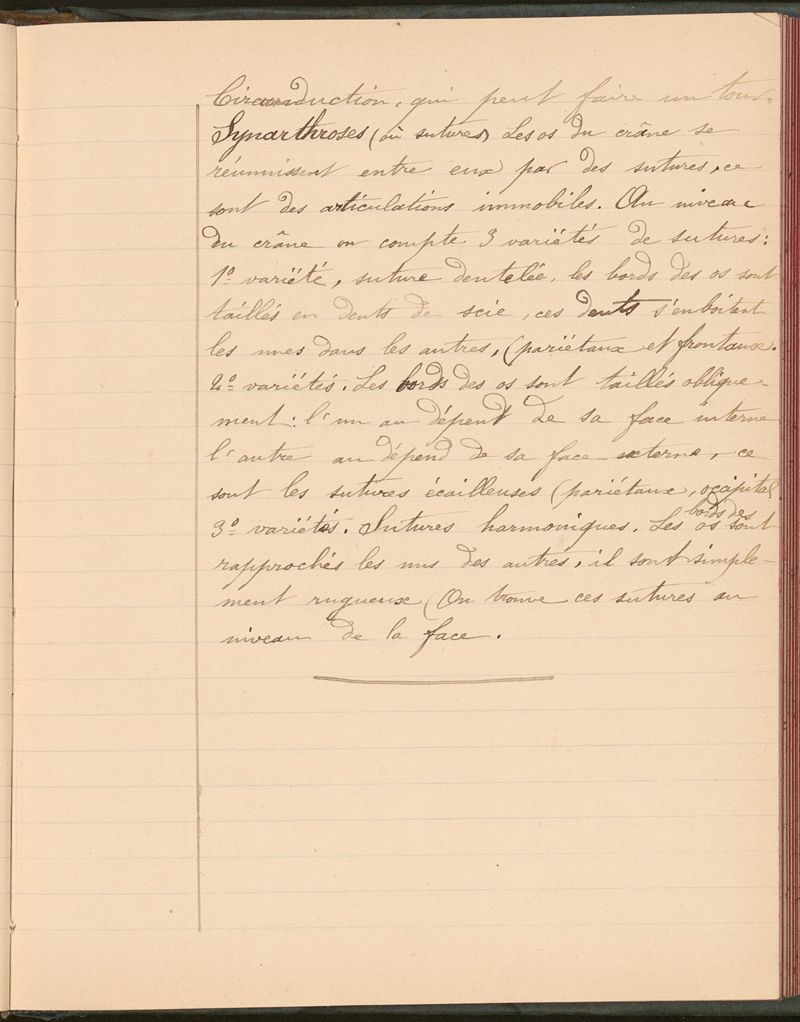 Circumduction, qui peut faire un tour.
Synarthroses (où sutures) Les os du crâne se
réunnissent entre eux par des sutures, ce
sont des articulations immobiles. Au niveau
du crâne on compte 3 variétés de sutures:
1º variété, suture dentelée, les bords des os sont
taillés en dents de scie, ces dents s'emboitent
les unes dans les autres, (pariétaux et frontaux.
2º variétés. Les bords des os sont taillés oblique-
ment: l'un au dépend de sa face interne
l'autre au dépend de sa face externe, ce
sont les sutures écailleuses (pariétaux, occipital
3º variétés. Sutures harmoniques. Les bords des os sont
rapprochés les uns des autres, il sont simple-
ment rugueux (On trouve ces sutures au
niveau de la face.